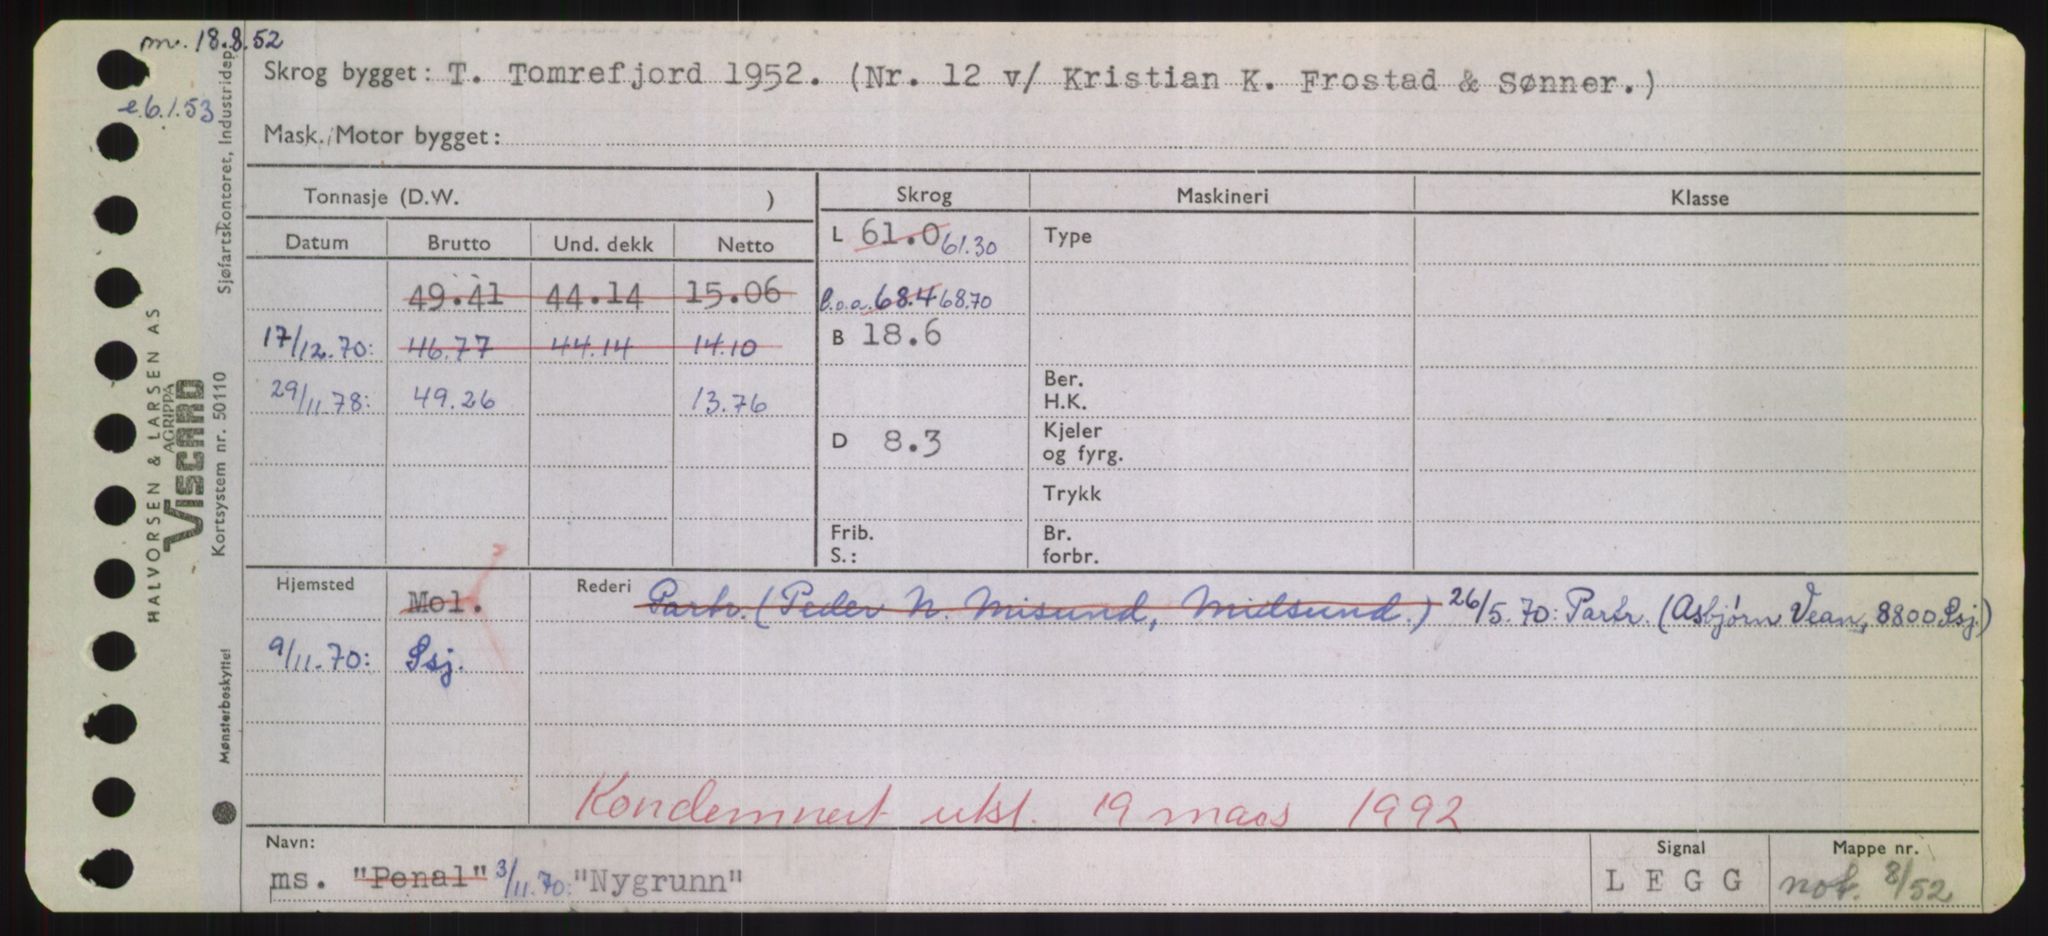 m. 18.8.52
Skrog bygget: T. Tomrefjord 1952. (Nr. 12 v/ Kristian K. Frostad & Sønner.)
e.6.1.53
Mask./Motor bygget:
Tonnasje (D.W. ) Skrog Maskineri Klasse
Datum Brutto Und. dekk Netto L 61.0 61.30 Type
49.41 44.14 15.06 l.o.a. 68.4 68.70
17/12.70: 46.77 44.14 14.10 B 18.6
29/11.78: 49.26 13.76 Ber. H.K.
D 8.3 Kjeler og fyrg.
Trykk
Frib. S.: Br. forbr.
Hjemsted Mol. Rederi Partr. (Peder N. Misund, Midsund.) 26/5.70: Partr. (Asbjørn Vean, 8800 Ssj.)
9/11.70: Ssj.
Kondemnert utsl. 19 mars 1992
Navn: Signal Mappe nr.
ms. "Penal" 3/11.70: "Nygrunn" L E G G not. 8/52
HALVORSEN & LARSEN AS
AGRIPPA
VISCARD
Mønsterbeskyttet Kortsystem nr. 50110 Sjøfartskontoret, Industridep.